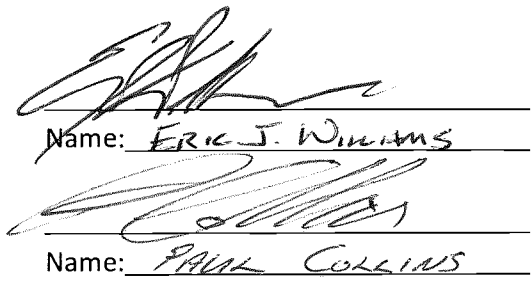 Name: ERIC J. WILLIAMS
Name: PAUL COLLINS